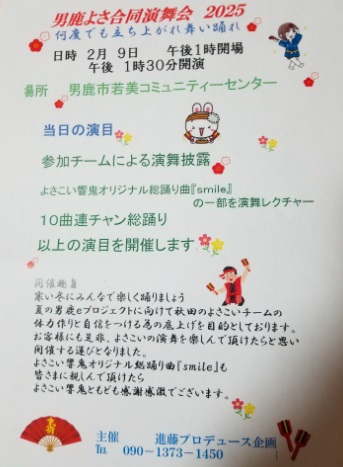 男鹿よさ合同演舞会 2025
何度でも立ち上がれ舞い踊れ
日時 2月 9日 午後1時開場
午後 1時30分開演
場所 男鹿市若美コミュニティーセンター
当日の演目
参加チームによる演舞披露
よさこい響鬼オリジナル総踊り曲『smile』
の一部を演舞レクチャー
10曲連チャン総踊り
以上の演目を開催します
開催趣旨
寒い冬にみんなで楽しく踊りましょう
夏の男鹿eプロジェクトに向けて秋田のよさこいチームの
体力作りと自信をつける為の底上げを目的としております。
お客様にも是非、よさこいの演舞を楽しんで頂けたらと思い
開催する運びとなりました。
よさこい響鬼オリジナル総踊り曲『smile』も
皆さまに親しんで頂けたら
よさこい響鬼ともども感謝感激でございます。
主催 進藤プロデュース企画
℡ 090-1373-1450